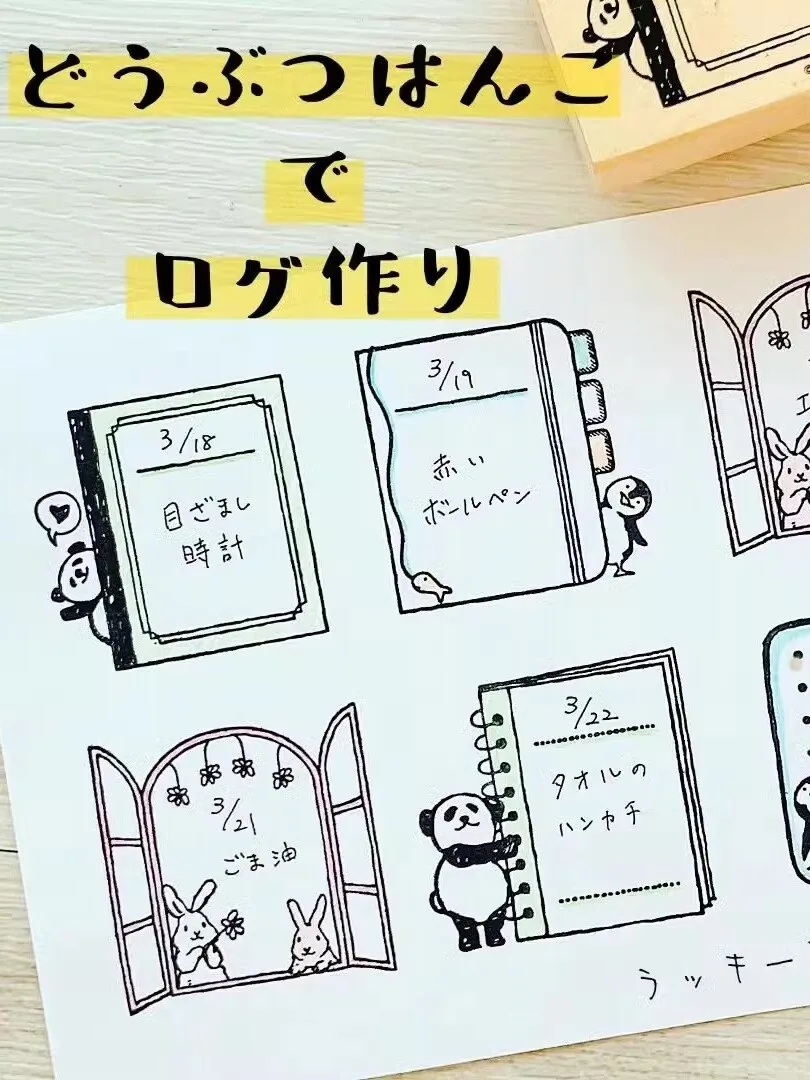 どうぶつはんこ
で
ログ作り
3/18
目ざまし
時計
3/19
赤い
ボールペン
3/21
ごま油
3/22
タオルの
ハンカチ
ラッキー